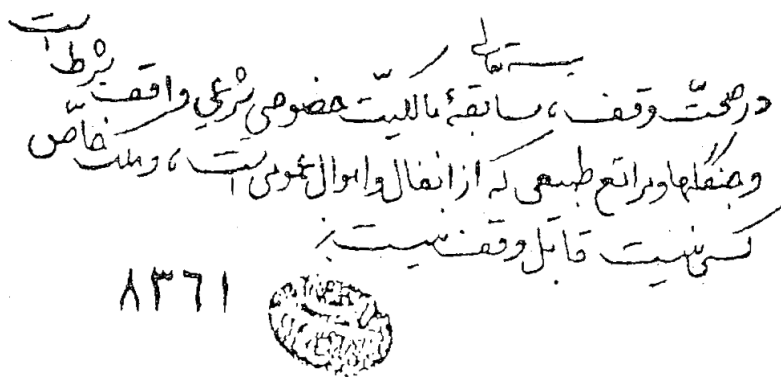 بسمه تعالی
در صحّت وقف، سابقهٔ مالکیّت خصوصی شرعی واقف شرط است
و جنگلها و مراتع طبیعی که از انفال و اموال عمومی است، و ملک خاصّ
کسی نیست قابل وقف نیست
۸۳۶۱